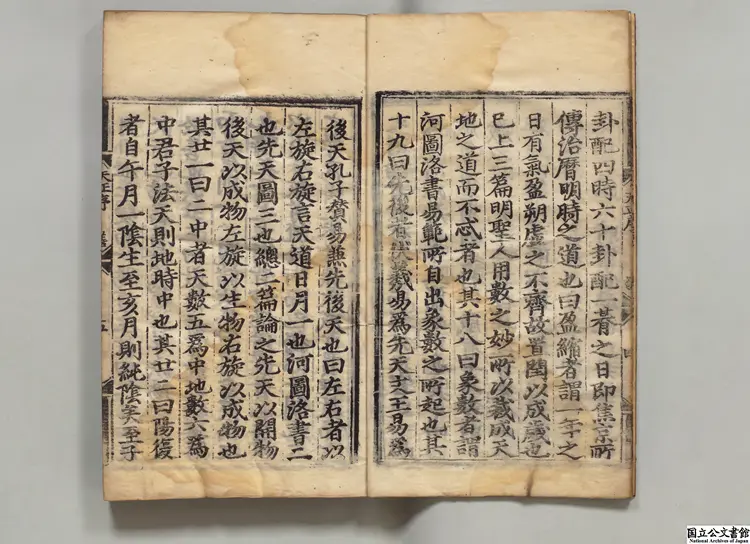 卦配四時六十卦配一朞之日即焦京所
傳治曆明時之道也曰盈縮者謂一年之
日有氣盈朔虛之不齊故置閏以成歲也
已上三篇明聖人用數之妙所以裁成天
地之道而不忒者也其十八曰象數者謂
河圖洛書易範所自出象數之所起也其
十九曰先後者伏羲易爲先天文王易爲
後天孔子賛易兼先後天也曰左右者以
左旋右旋言天道日月一也河圖洛書二
也先天圖三也總二篇論之先天以開物
後天以成物左旋以生物右旋以成物也
其廿一曰二中者天數五爲中地數六爲
中君子法天則地時中也其廿二曰陽復
者自午月一陰生至亥月則純陰矣至子
五
国立公文書館
National Archives of Japan